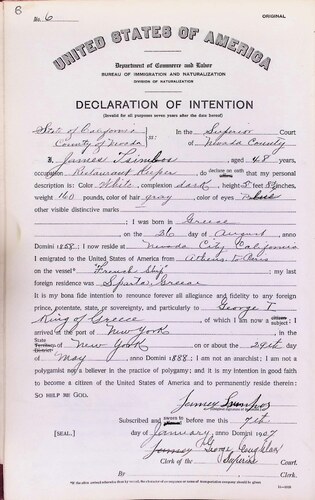 8
ORIGINAL
No. 6
UNITED STATES OF AMERICA
Department of Commerce and Labor
BUREAU OF IMMIGRATION AND NATURALIZATION
DIVISION OF NATURALIZATION
DECLARATION OF INTENTION
(Invalid for all purposes seven years after the date hereof)
State of California
County of Nevada ss: In the Superior Court
of Nevada County
I, James Tsimbos, aged 48 years,
occupation Restaurant Keeper, do declare on oath that my personal
description is: Color White, complexion dark, height 5 feet 8½ inches,
weight 160 pounds, color of hair gray, color of eyes blue
other visible distinctive marks
I was born in Greece
on the 26 day of August, anno
Domini 1858; I now reside at Nevada City, California
I emigrated to the United States of America from Athens, to Paris
on the vessel "French Ship"; my last
foreign residence was Sparta, Greece
It is my bona fide intention to renounce forever all allegiance and fidelity to any foreign
prince, potentate, state, or sovereignty, and particularly to George I
King of Greece, of which I am now a citizen subject; I
arrived at the port of New York, in the
State Territory District of New York on or about the 29th day
of May, anno Domini 1888; I am not an anarchist; I am not a
polygamist nor a believer in the practice of polygamy; and it is my intention in good faith
to become a citizen of the United States of America and to permanently reside therein:
SO HELP ME GOD.
James
Subscribed and sworn to before me this 7th
[SEAL.] day of January, anno Domini 1907
George Coughlan
Clerk of the Superior Court.
By, Clerk.